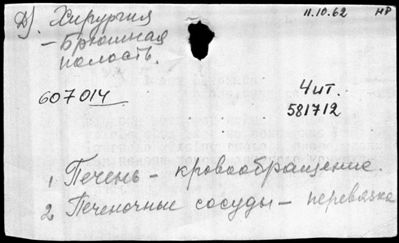 Д). Хирургия 11.10.62 НР
- Брюшная
полость.
607014 Чит.
581712
1 Печень - кровообращение.
2 Печеночные сосуды - перевязка